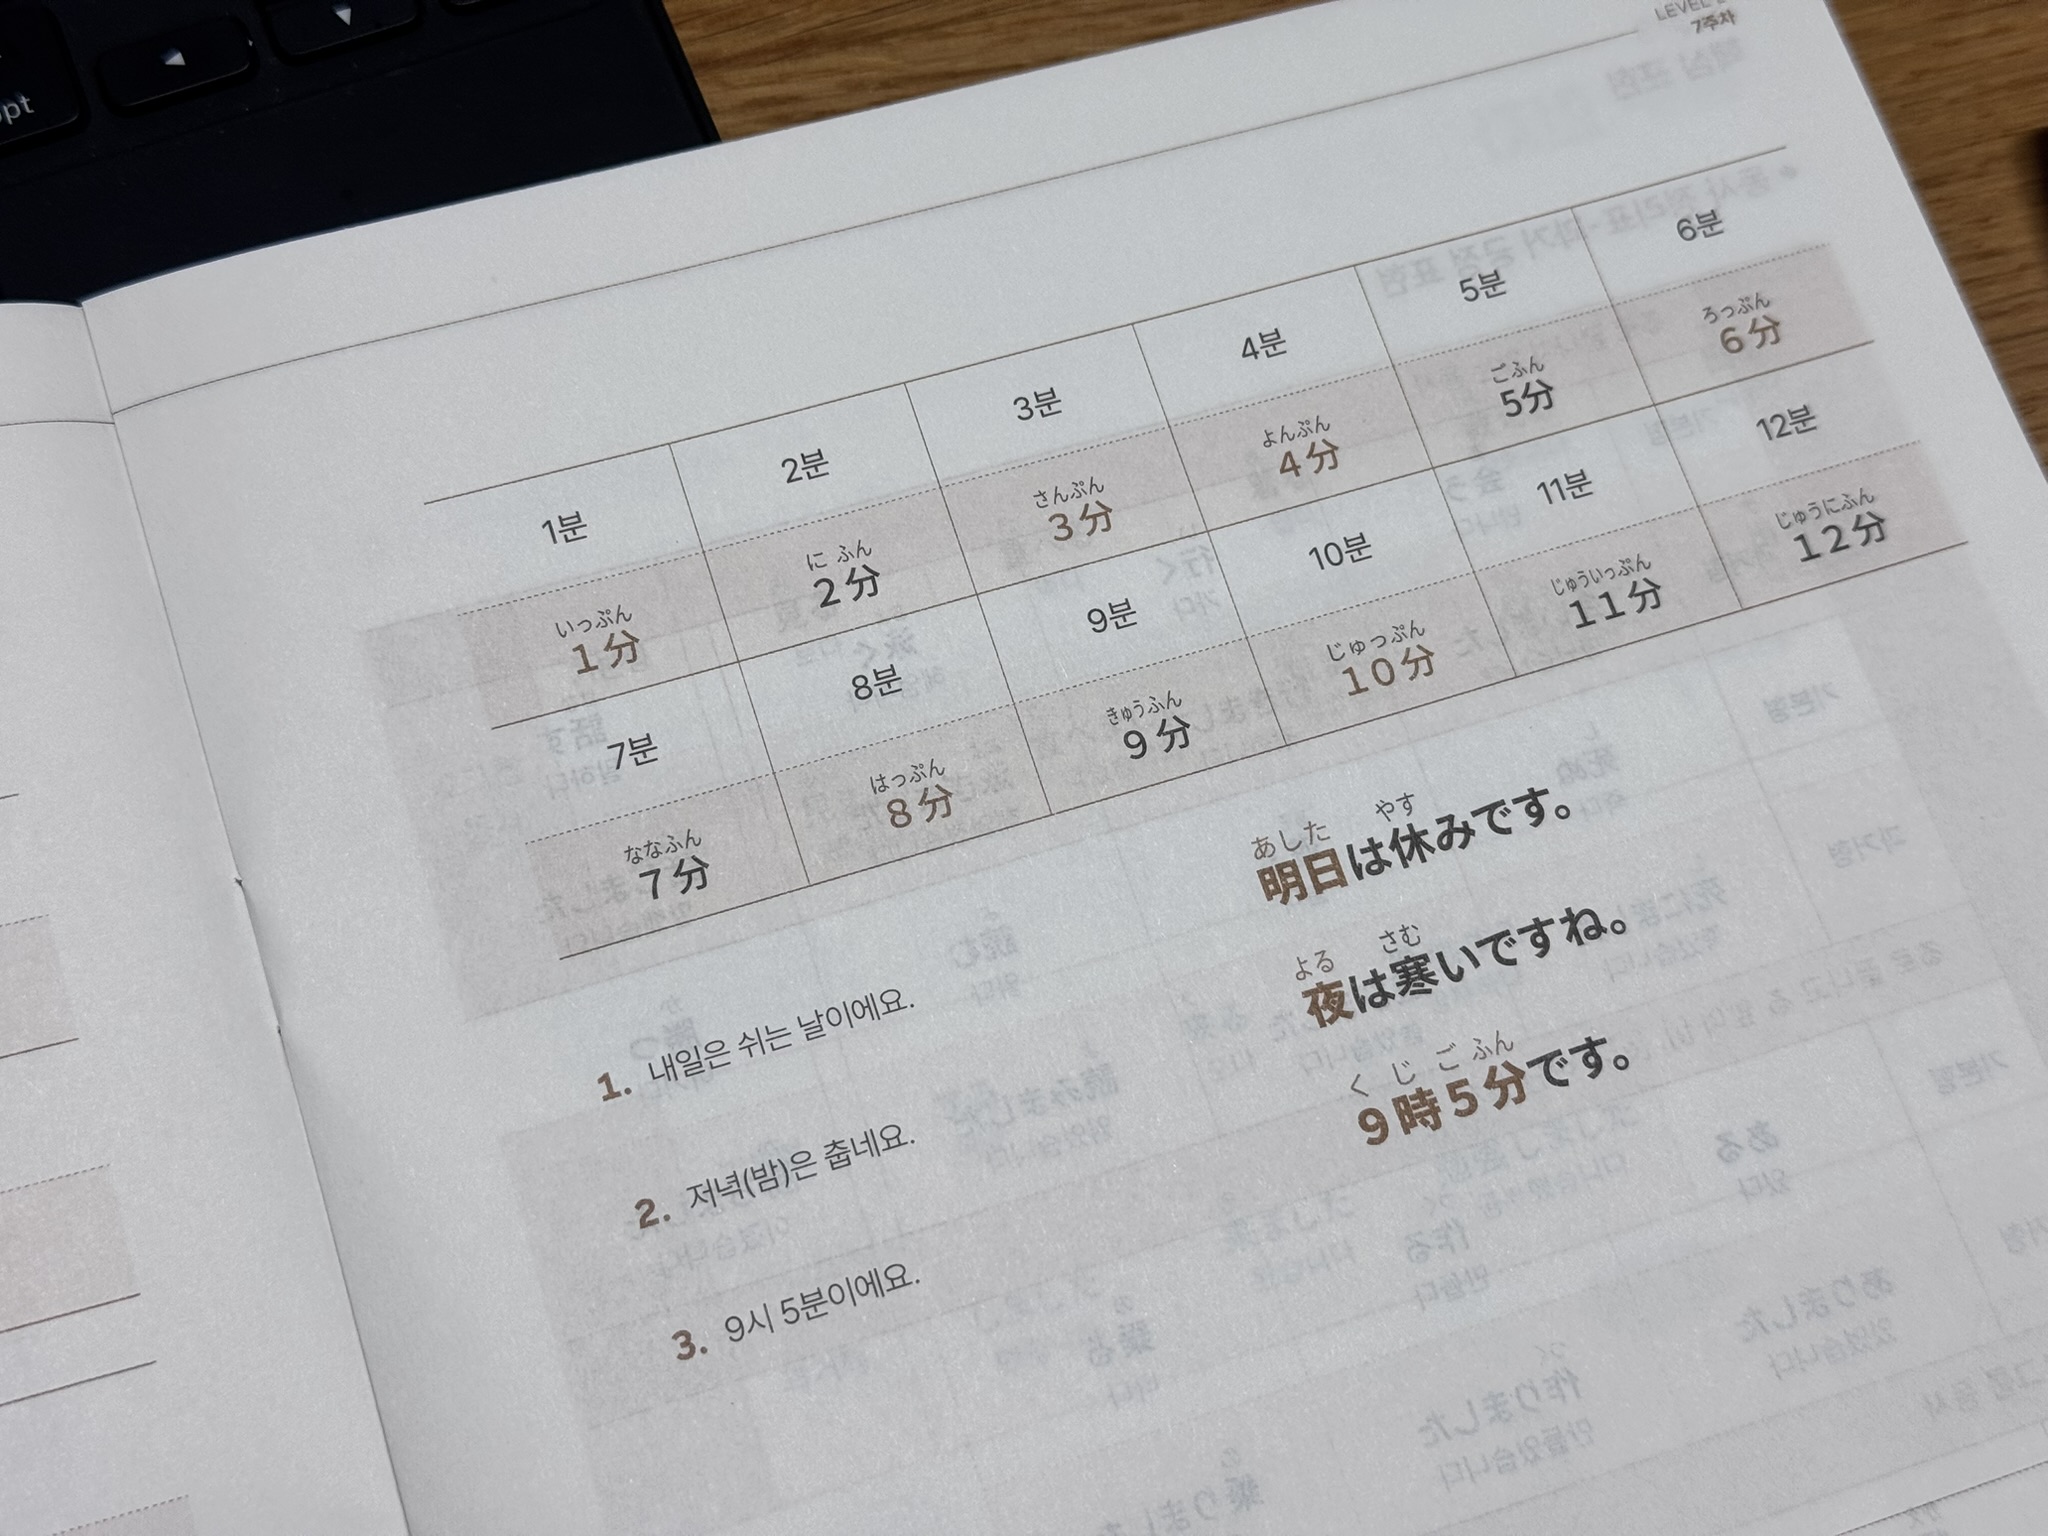 opt
7주차
1분 2분 3분 4분 5분 6분
いっぷん に ふん さんぷん よんぷん ごふん ろっぷん
1分 2分 3分 4分 5分 6分
7분 8분 9분 10분 11분 12분
ななふん はっぷん きゅうふん じゅっぷん じゅういっぷん じゅうにふん
7分 8分 9分 10分 11分 12分
1. 내일은 쉬는 날이에요.
あした やす
明日は休みです。
2. 저녁(밤)은 춥네요.
よる さむ
夜は寒いですね。
3. 9시 5분이에요.
く じ ご ふん
9時5分です。